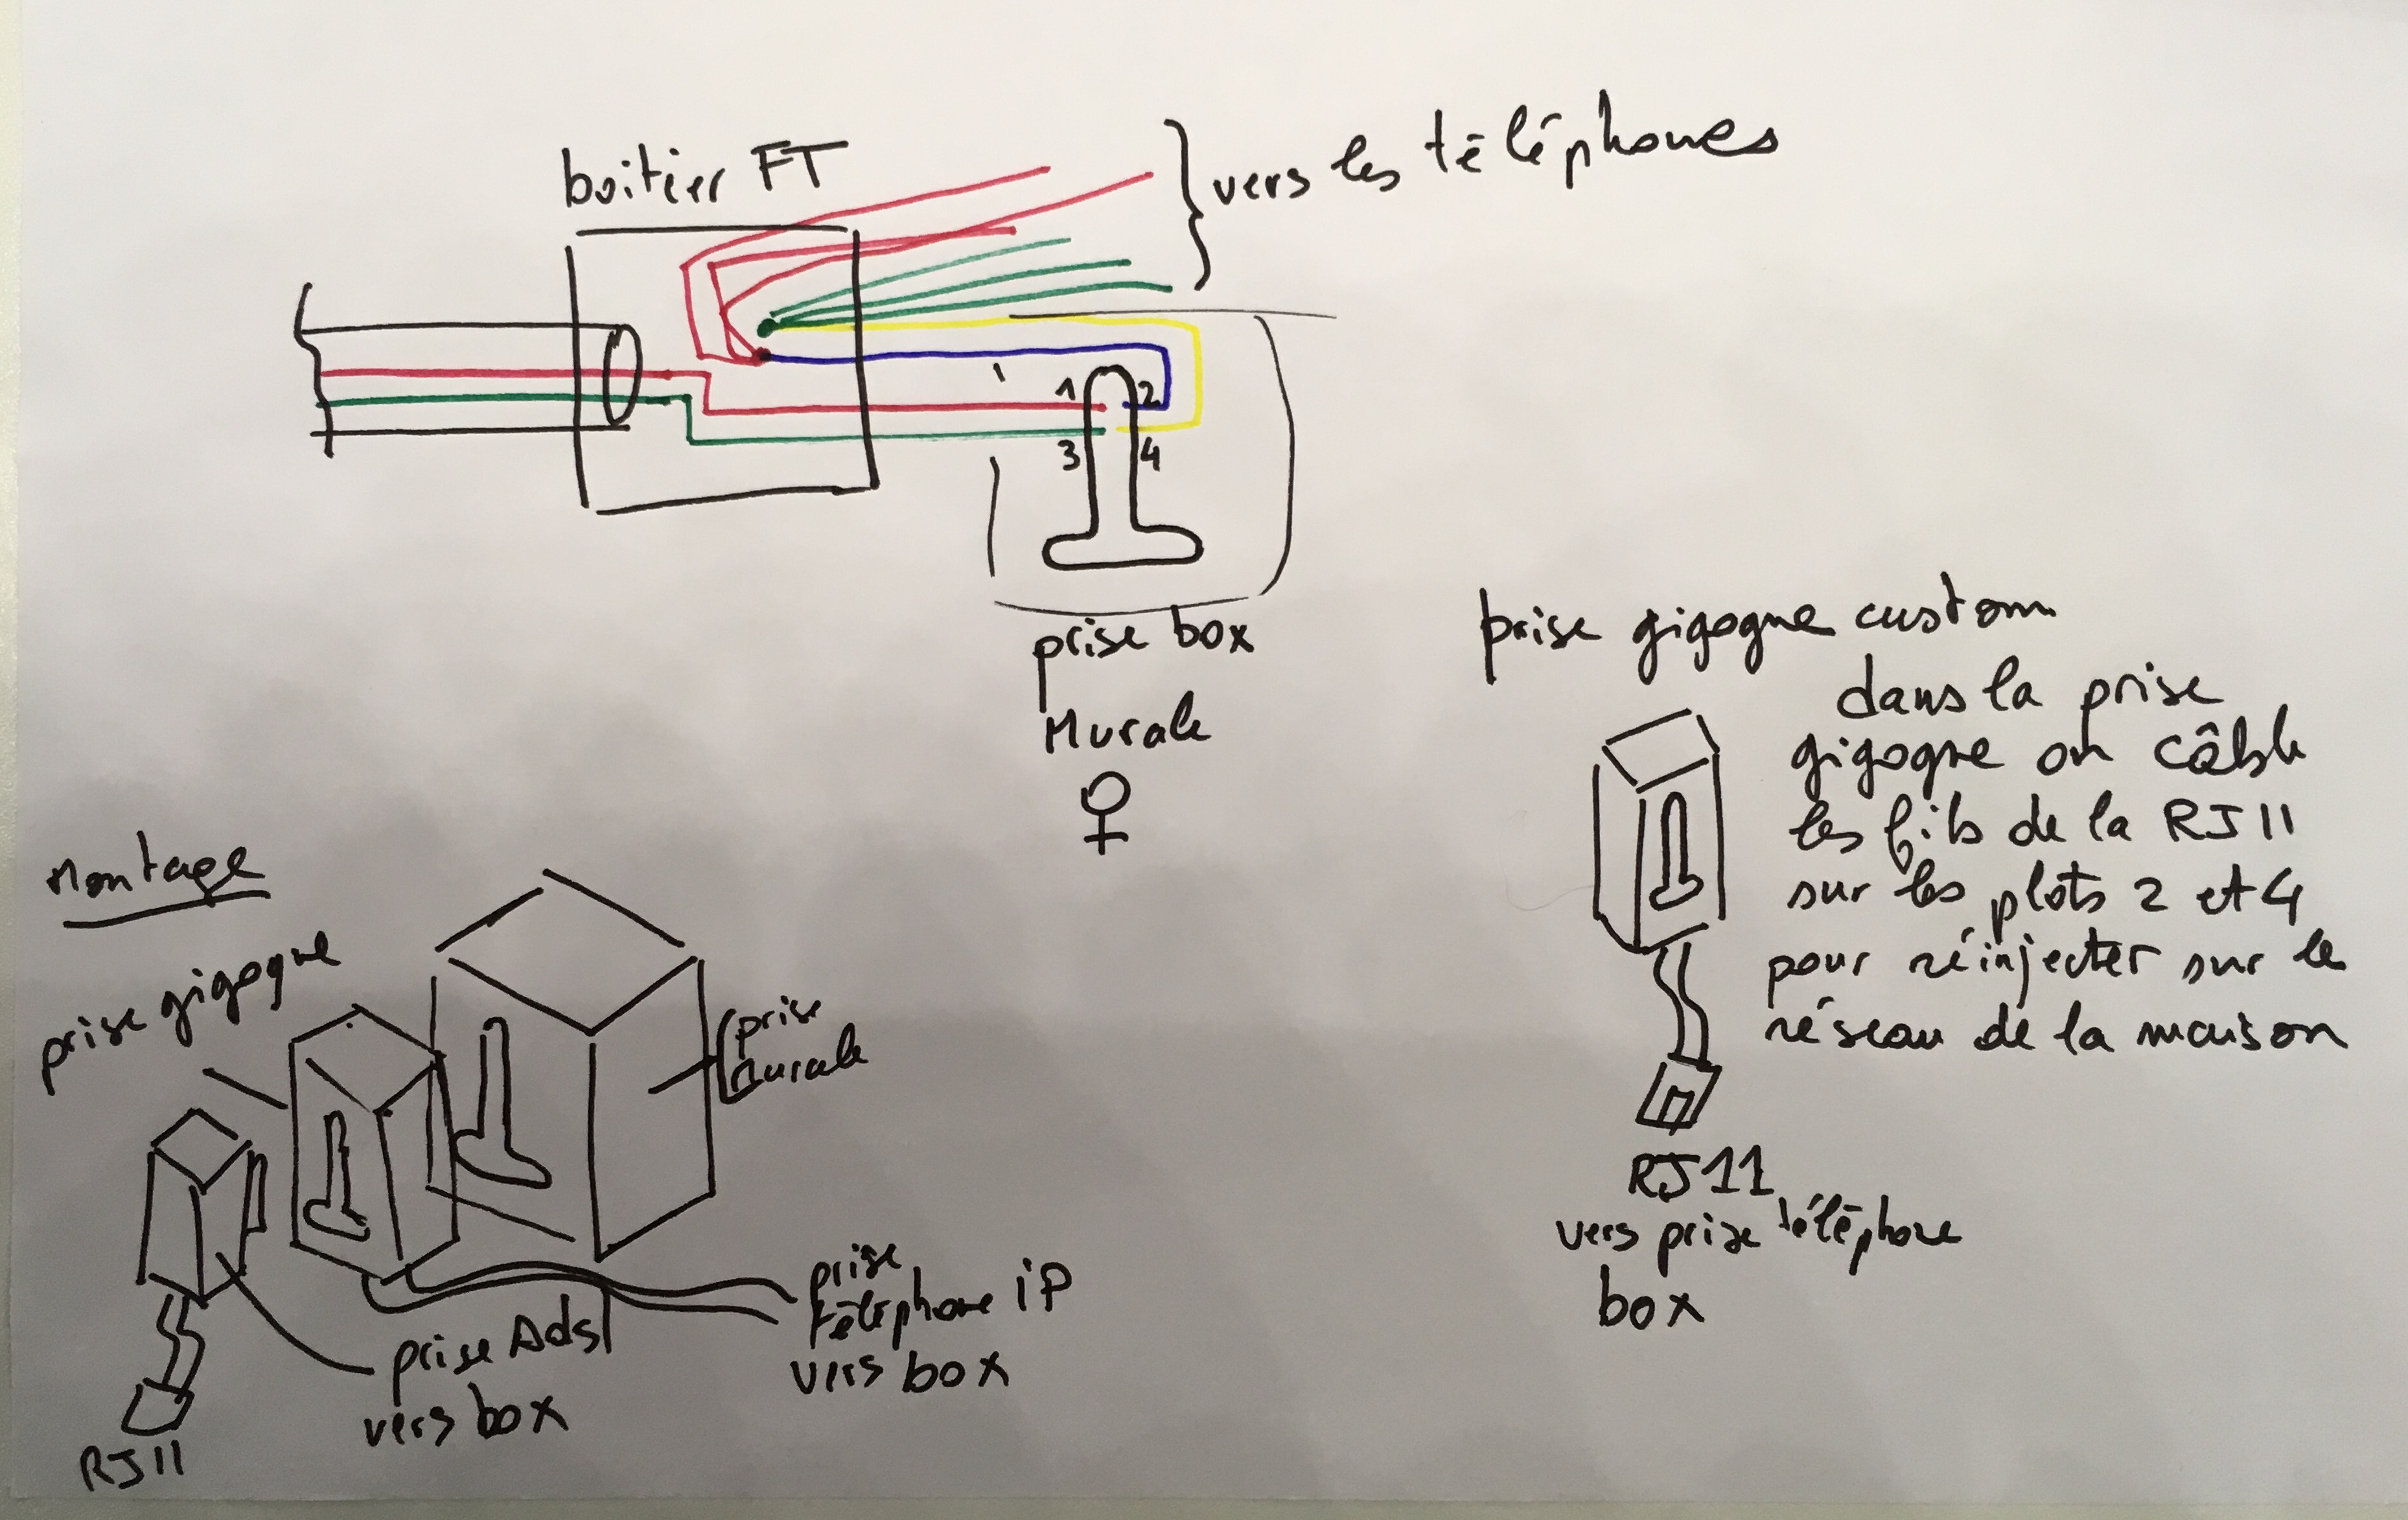 boitier FT
vers les téléphones
1 2
3 4
prise box
Murale
prise gigogne custom
dans la prise
gigogne on câble
les fils de la RJ11
sur les plots 2 et 4
pour réinjecter sur le
réseau de la maison
RJ11
vers prise téléphone
box
Montage
prise gigogne
prise
murale
prise
téléphone iP
vers box
prise Adsl
vers box
RJ11